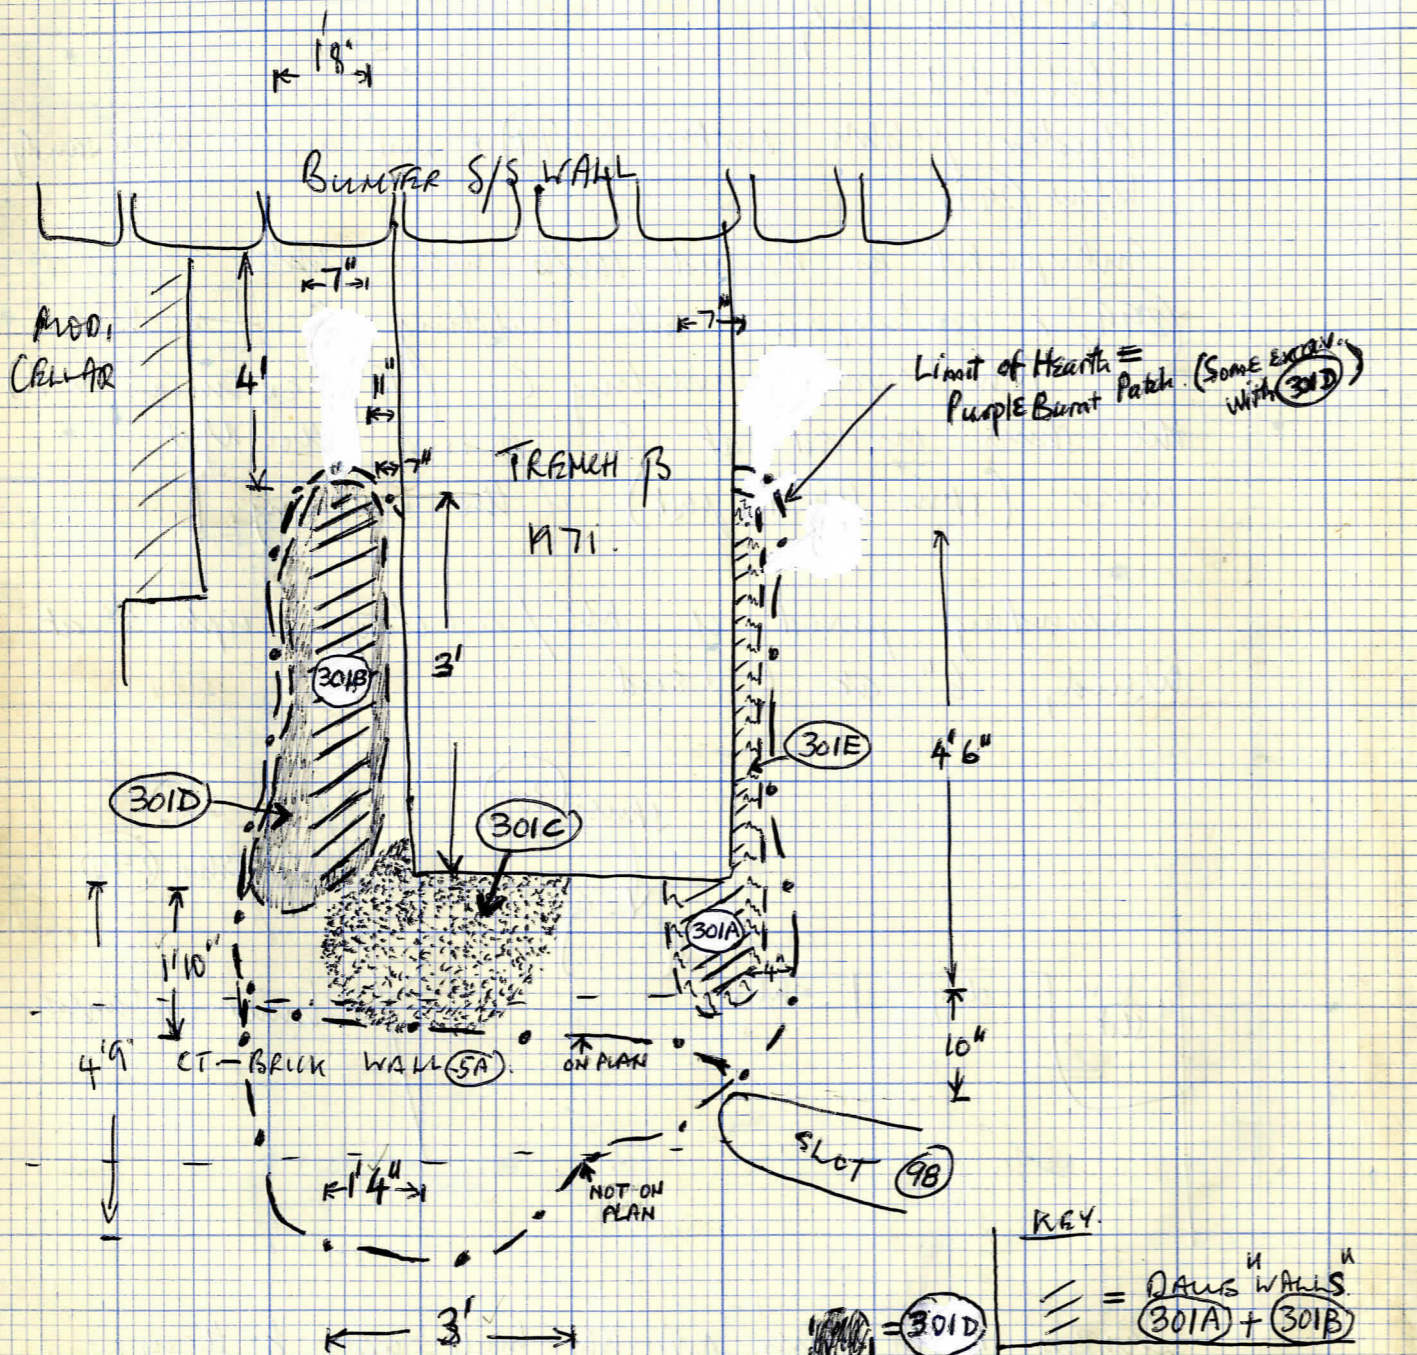 1'8"
BUNTER S/S WALL
7"
7"
MOD.
CELLAR
4'
11"
7"
Limit of Hearth =
Purple Burnt Patch. (Some excav.
with 301D)
TRENCH β
1971.
301B
3'
301E
4'6"
301D
301C
301A
4"
1'10"
10"
4'9"
CT-BRICK WALL 5A.
ON PLAN
SLOT 98
1'4"
NOT ON
PLAN
KEY.
3'
= 301D
= DAUB "WALLS"
301A + 301B